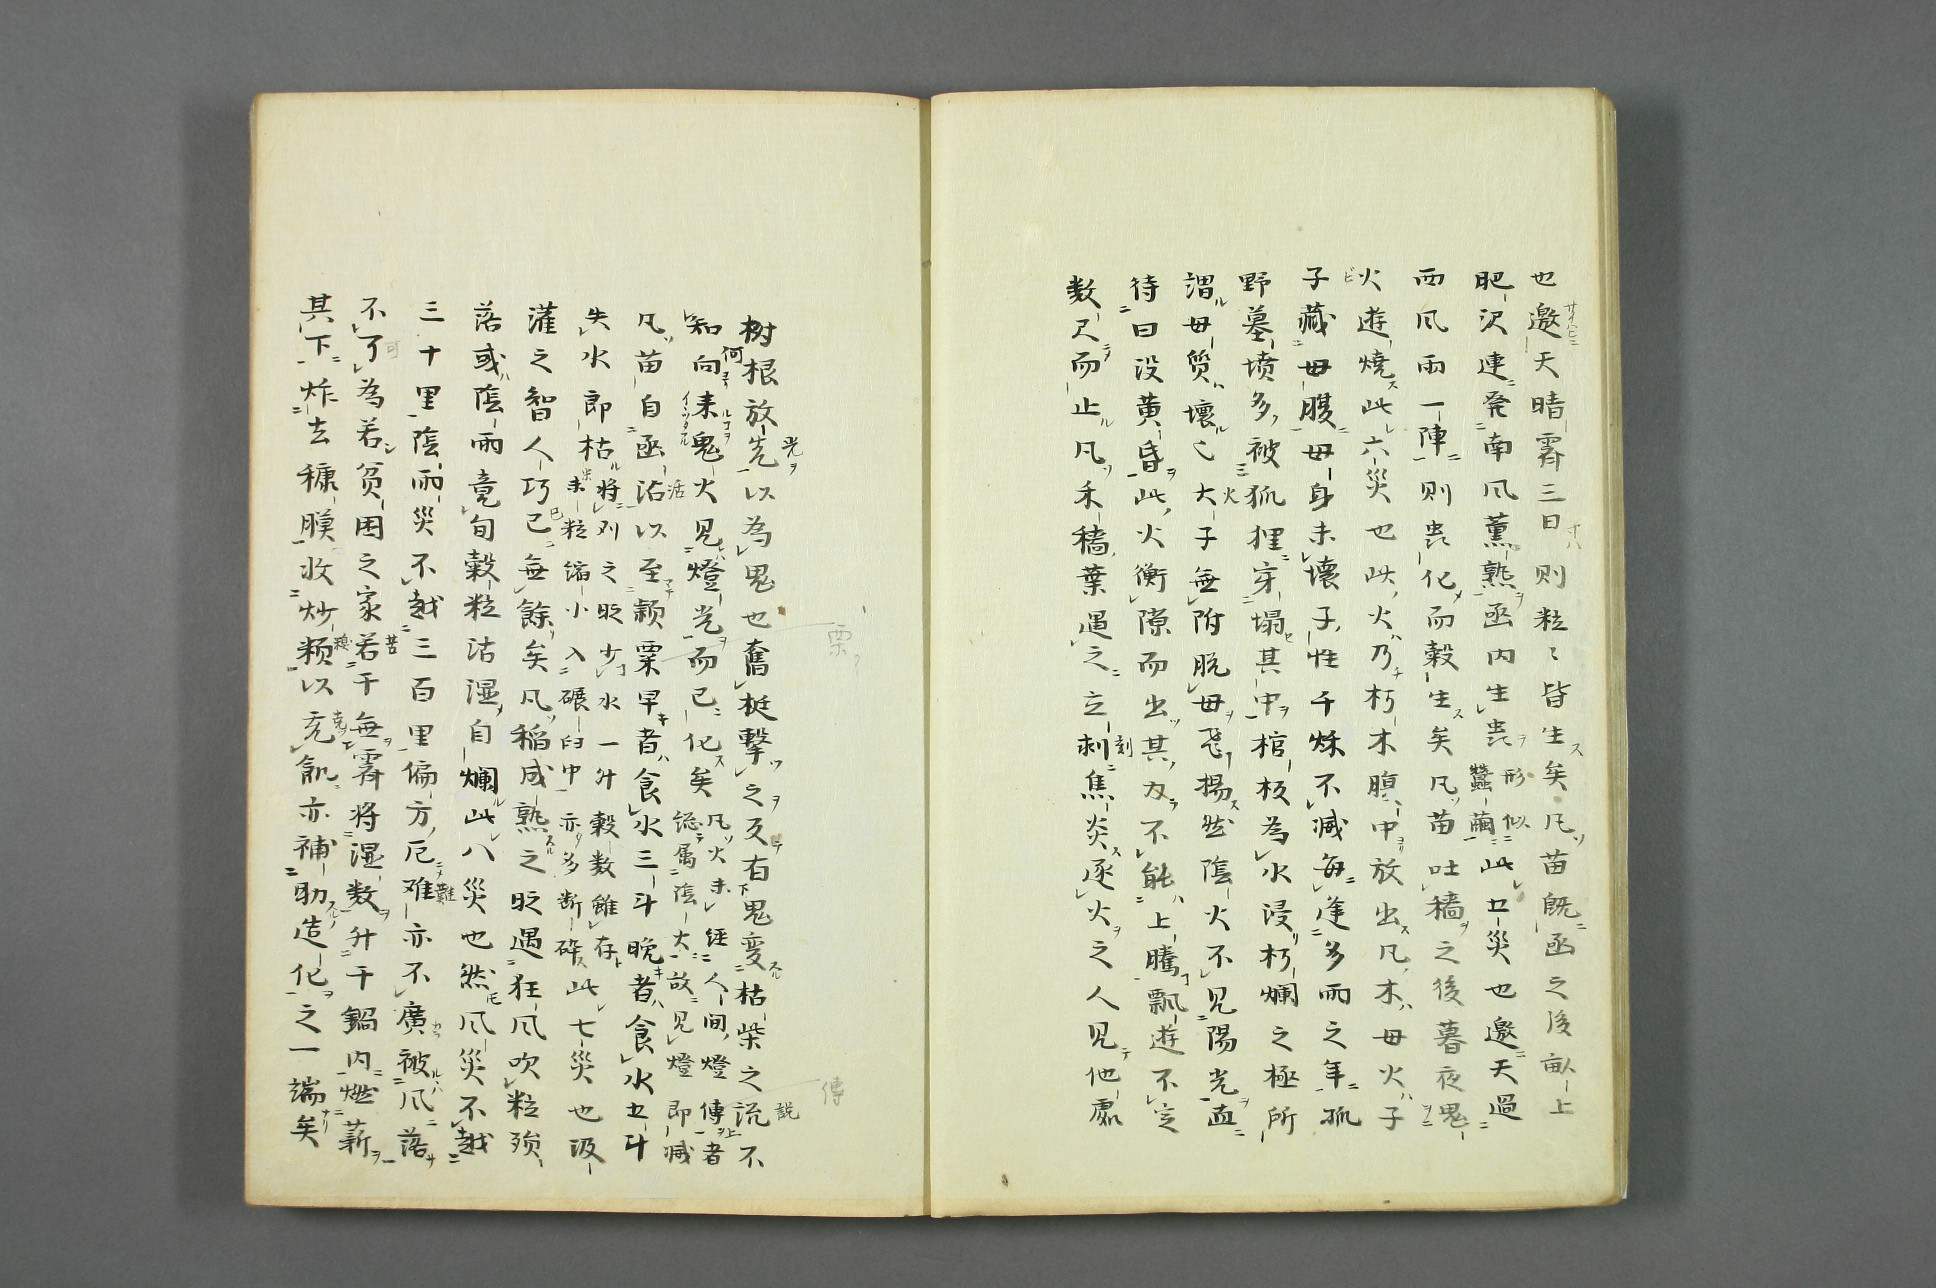 也邀天晴霽三日則粒〻皆生矣凡苗既函之後畝上
肥沢連発南风薫熱函内生虫形似蠶繭此五災也邀天遇
西风雨一陣則虫化而穀生矣凡苗吐穡之後暮夜鬼
火遊燒此六災也此火乃朽木腹中放出凡木母火子
子藏母腹母身未壞子性千秌不滅每逢多雨之年孤
野墓墳多被狐狸穿塌其中棺板為水浸朽爛之極所
謂母質壞也火子無附脱母飛揚然陰火不見陽光直
待日没黄昏此火衝隙而出其力不能上騰飄遊不定
数尺而止凡禾穡葉遇之立刻焦炎逐火之人見他處
樹根放光以為鬼也奮梃擊之反有鬼変枯柴之説不
知向来鬼火見燈光而已化矣凡火未経人間燈傳者総属陰火故見燈即滅
凡苗自函活以至穎粟早者食水三斗晚者食水五斗
失水即枯将刈之时少水一升穀数雖存米粒縮小入碾臼中亦多断碎此七災也汲
灌之智人巧已無餘矣凡稲成熟之时遇狂风吹粒殞
落或陰雨竟旬穀粒沾湿自爛此八災也然风災不越
三十里陰雨災不越三百里偏方厄难亦不廣被风落
不可為若貧困之家苦于無霽将湿数升于鍋内燃薪
其下炸去糠膜收炒糗以充飢亦補助造化之一端矣